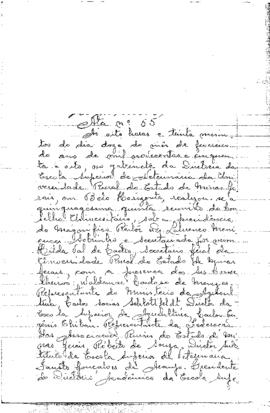 Ata nº 55
As oito horas e trinta minu
tos do dia doze do mês de fevereiro
do ano de mil novecentos e cinquen
ta e oito, no gabinete da Diretoria da
Escola Superior de Veterinária da Uni
versidade Rural do Estado de Minas Ge
rais, em Belo Horizonte, realizou-se a
quinquagésima quinta reunião do Con
selho Universitário, sob a presidência
do Magnífico Reitor Dr. Lourenço Meni
cucci Sobrinho e secretariada por
secretário geral da
Universidade Rural do Estado de Minas
Gerais, com a presença dos srs. Conse
lheiros, Waldemar Cardoso de Menezes
Representante do Ministério da Agricul
tura, Carlos Schlottfeldt Diretor da
Escola Superior de Agricultura, Carlos Eu
gênio Representante da Federação
das Associações Rurais do Estado de Mi
nas Gerais Roberto de Souza, Diretor Subs
tituto da Escola Superior de Veterinária
Fausto Gonçalves de Araujo, Presidente
do Diretório Acadêmico da Escola Supe